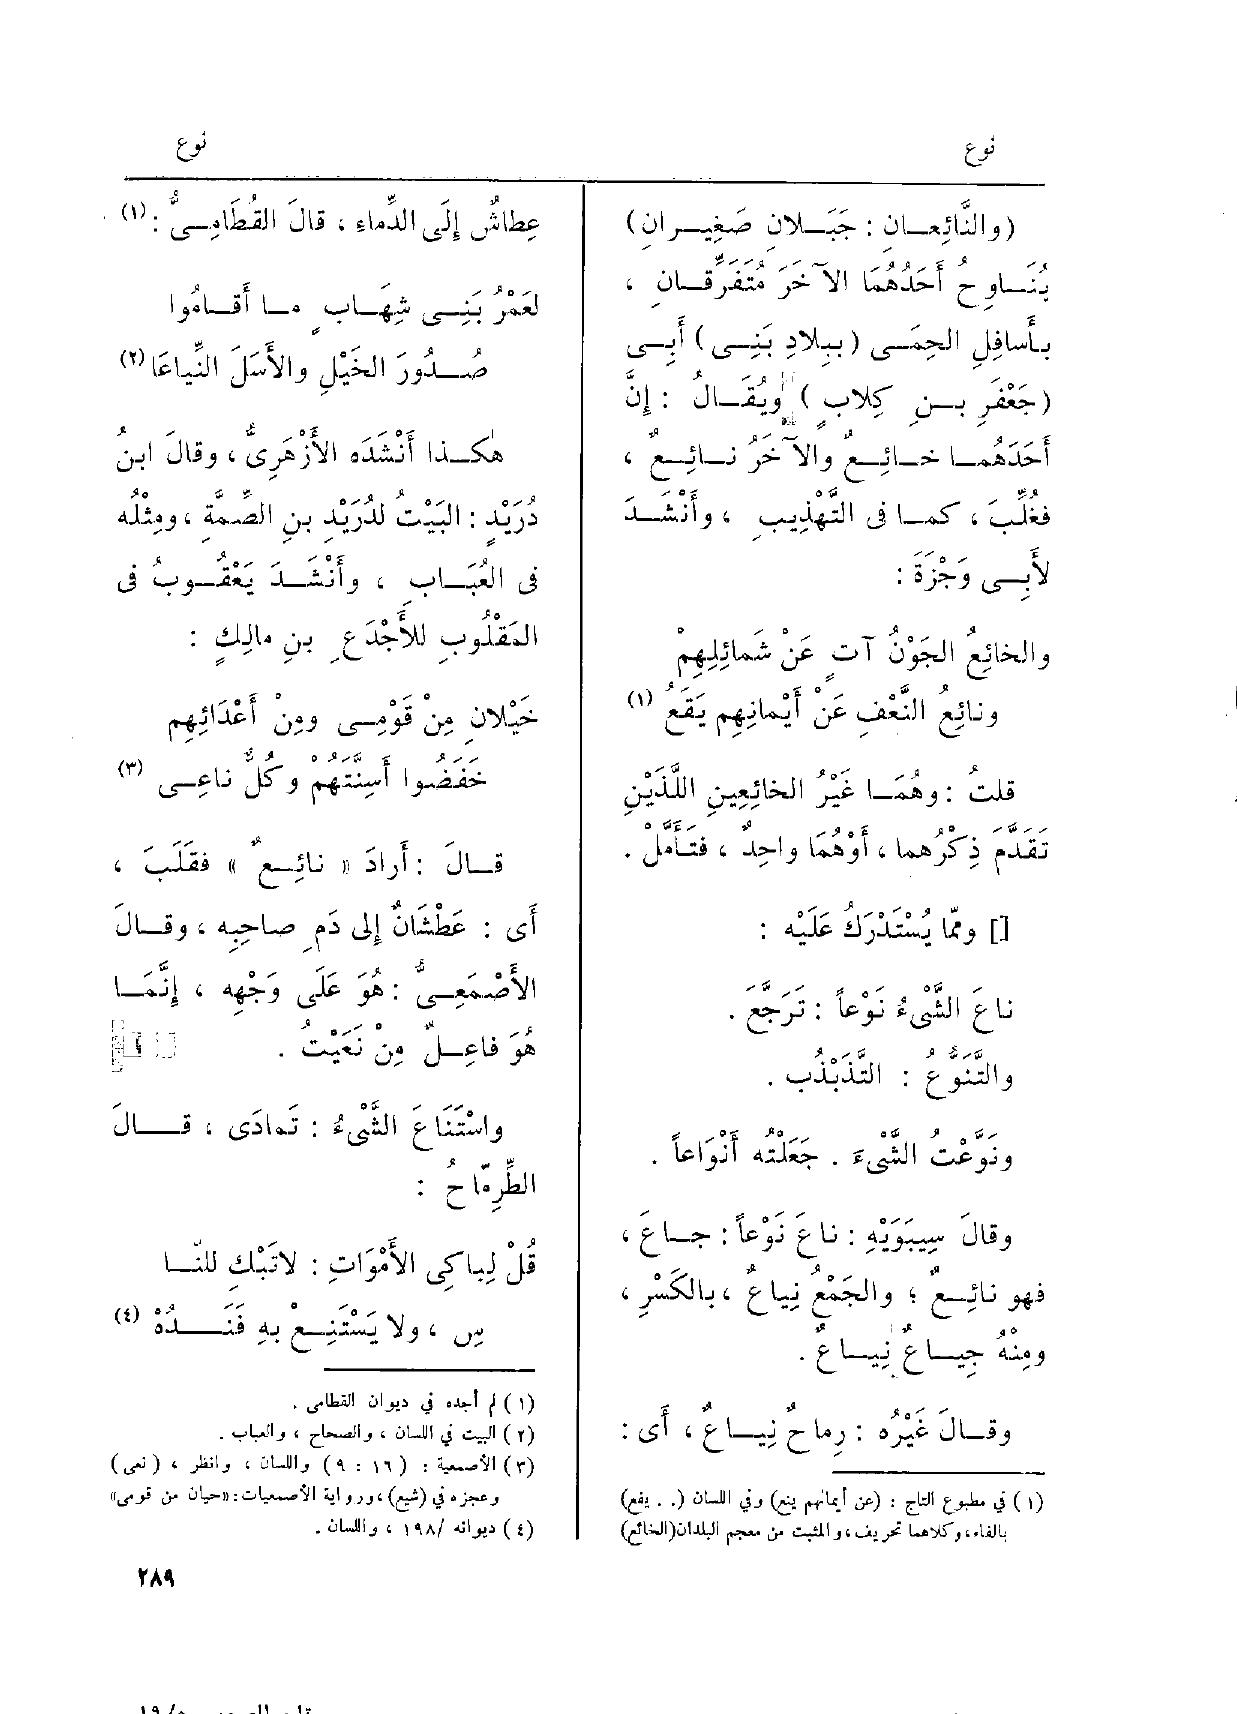 نوع
نوع
(والنَّائِعــان : جَبَــلانِ صَغِيــرانِ)
يُنَــاوِحُ أَحَدُهُمَا الآخَرَ مُتَفَرِّقــانِ ،
بأَسافِلِ الحِمَــى (بِبِلادِ بَنِــى) أَبِــى
(جَعْفَرِ بــنِ كِلابٍ) ويُقَــالُ : إِنَّ
أَحَدَهُمــا خــائِــعٌ والآخَرُ نــائِــعٌ ،
فغُلِّبَ ، كمــا فى التَّهْذِيبِ ، وأَنْشَــدَ
لأَبِــى وَجْزَةَ :
والخائِعُ الجَوْنُ آتٍ عَنْ شَمائِلِهِمْ
ونائِعُ النَّعْفِ عَنْ أَيْمانِهِم يَقَعُ (١)
قلتُ : وهُمَــا غَيْرُ الخائِعِينِ اللَّذَيْنِ
تَقَدَّمَ ذِكْرُهما ، أَوْهُمَا واحِدٌ ، فتَأَمَّلْ .
[] وممّا يُسْتَدْرَكُ عَلَيْه :
ناعَ الشَّىْءُ نَوْعاً : تَرَجَّحَ .
والتَّنَوُّعُ : التَّذَبْذُب .
ونَوَّعْتُ الشَّىْءَ . جَعَلْتُه أَنْوَاعاً .
وقالَ سِيبَوَيْهِ : ناعَ نَوْعاً : جــاعَ ،
فهو نائِــعٌ ؛ والجَمْعُ نِياعٌ ، بالكَسْرِ ،
ومِنْهُ جِيــاعٌ نِيــاعٌ .
وقــالَ غَيْرُه : رِماحٌ نِيــاعٌ ، أَى :
(١) في مطبوع التاج : (عن أيمانهم ينع) وفي اللسان (. . يفع)
بالفاء، وكلاهما تحريف، والمثبت من معجم البلدان (الخائع)
عِطاشٌ إِلَى الدِّماءِ ، قالَ القُطَامِــىُّ : (١)
لَعَمْرُ بَنِــى شِهَــابٍ مــا أَقــامُوا
صُــدُورَ الخَيْلِ والأَسَلَ النِّياعَا (٢)
هكــذا أَنْشَدَه الأَزْهَرِىُّ ، وقالَ ابنُ
دُرَيْدٍ : البَيْتُ لدُرَيْدِ بنِ الصِّمَّةِ ، ومِثْلُه
فى العُبَــابِ ، وأَنْشَــدَ يَعْقُــوبُ فى
المَقْلُوبِ للأَجْدَعِ بنِ مالِكٍ :
خَيْلانِ مِنْ قَوْمِــى ومِنْ أَعْدَائِهِم
خَفَضُوا أَسِنَّتَهُمْ وكُلٌّ ناعِــى (٣)
قــالَ : أَرادَ «نائِــعٌ» فقَلَبَ ،
أَى : عَطْشَانٌ إِلى دَمِ صاحِبِه ، وقــالَ
الأَصْمَعِــىُّ : هُوَ عَلَى وَجْهِه ، إِنَّمَــا
هُوَ فاعِــلٌ مِنْ نَعَيْتُ .
واسْتَنَاعَ الشَّىْءُ : تَمادَى ، قــالَ
الطِّرِمّاحُ :
قُلْ لِباكِى الأَمْوَاتِ : لاتَبْكِ للنّــا
سِ ، ولا يَسْتَنِــعْ بِهِ فَنَــدُهْ (٤)
(١) لم أجده في ديوان القطامى .
(٢) البيت في اللسان ، والصحاح ، والعباب .
(٣) الأصمعية : (١٦ : ٩) واللسان ، وانظر ، (نعى)
وعجزه في (شيع)، ورواية الأصمعيات: «حيان من قومى»
(٤) ديوانه /١٩٨ ، واللسان .
٢٨٩